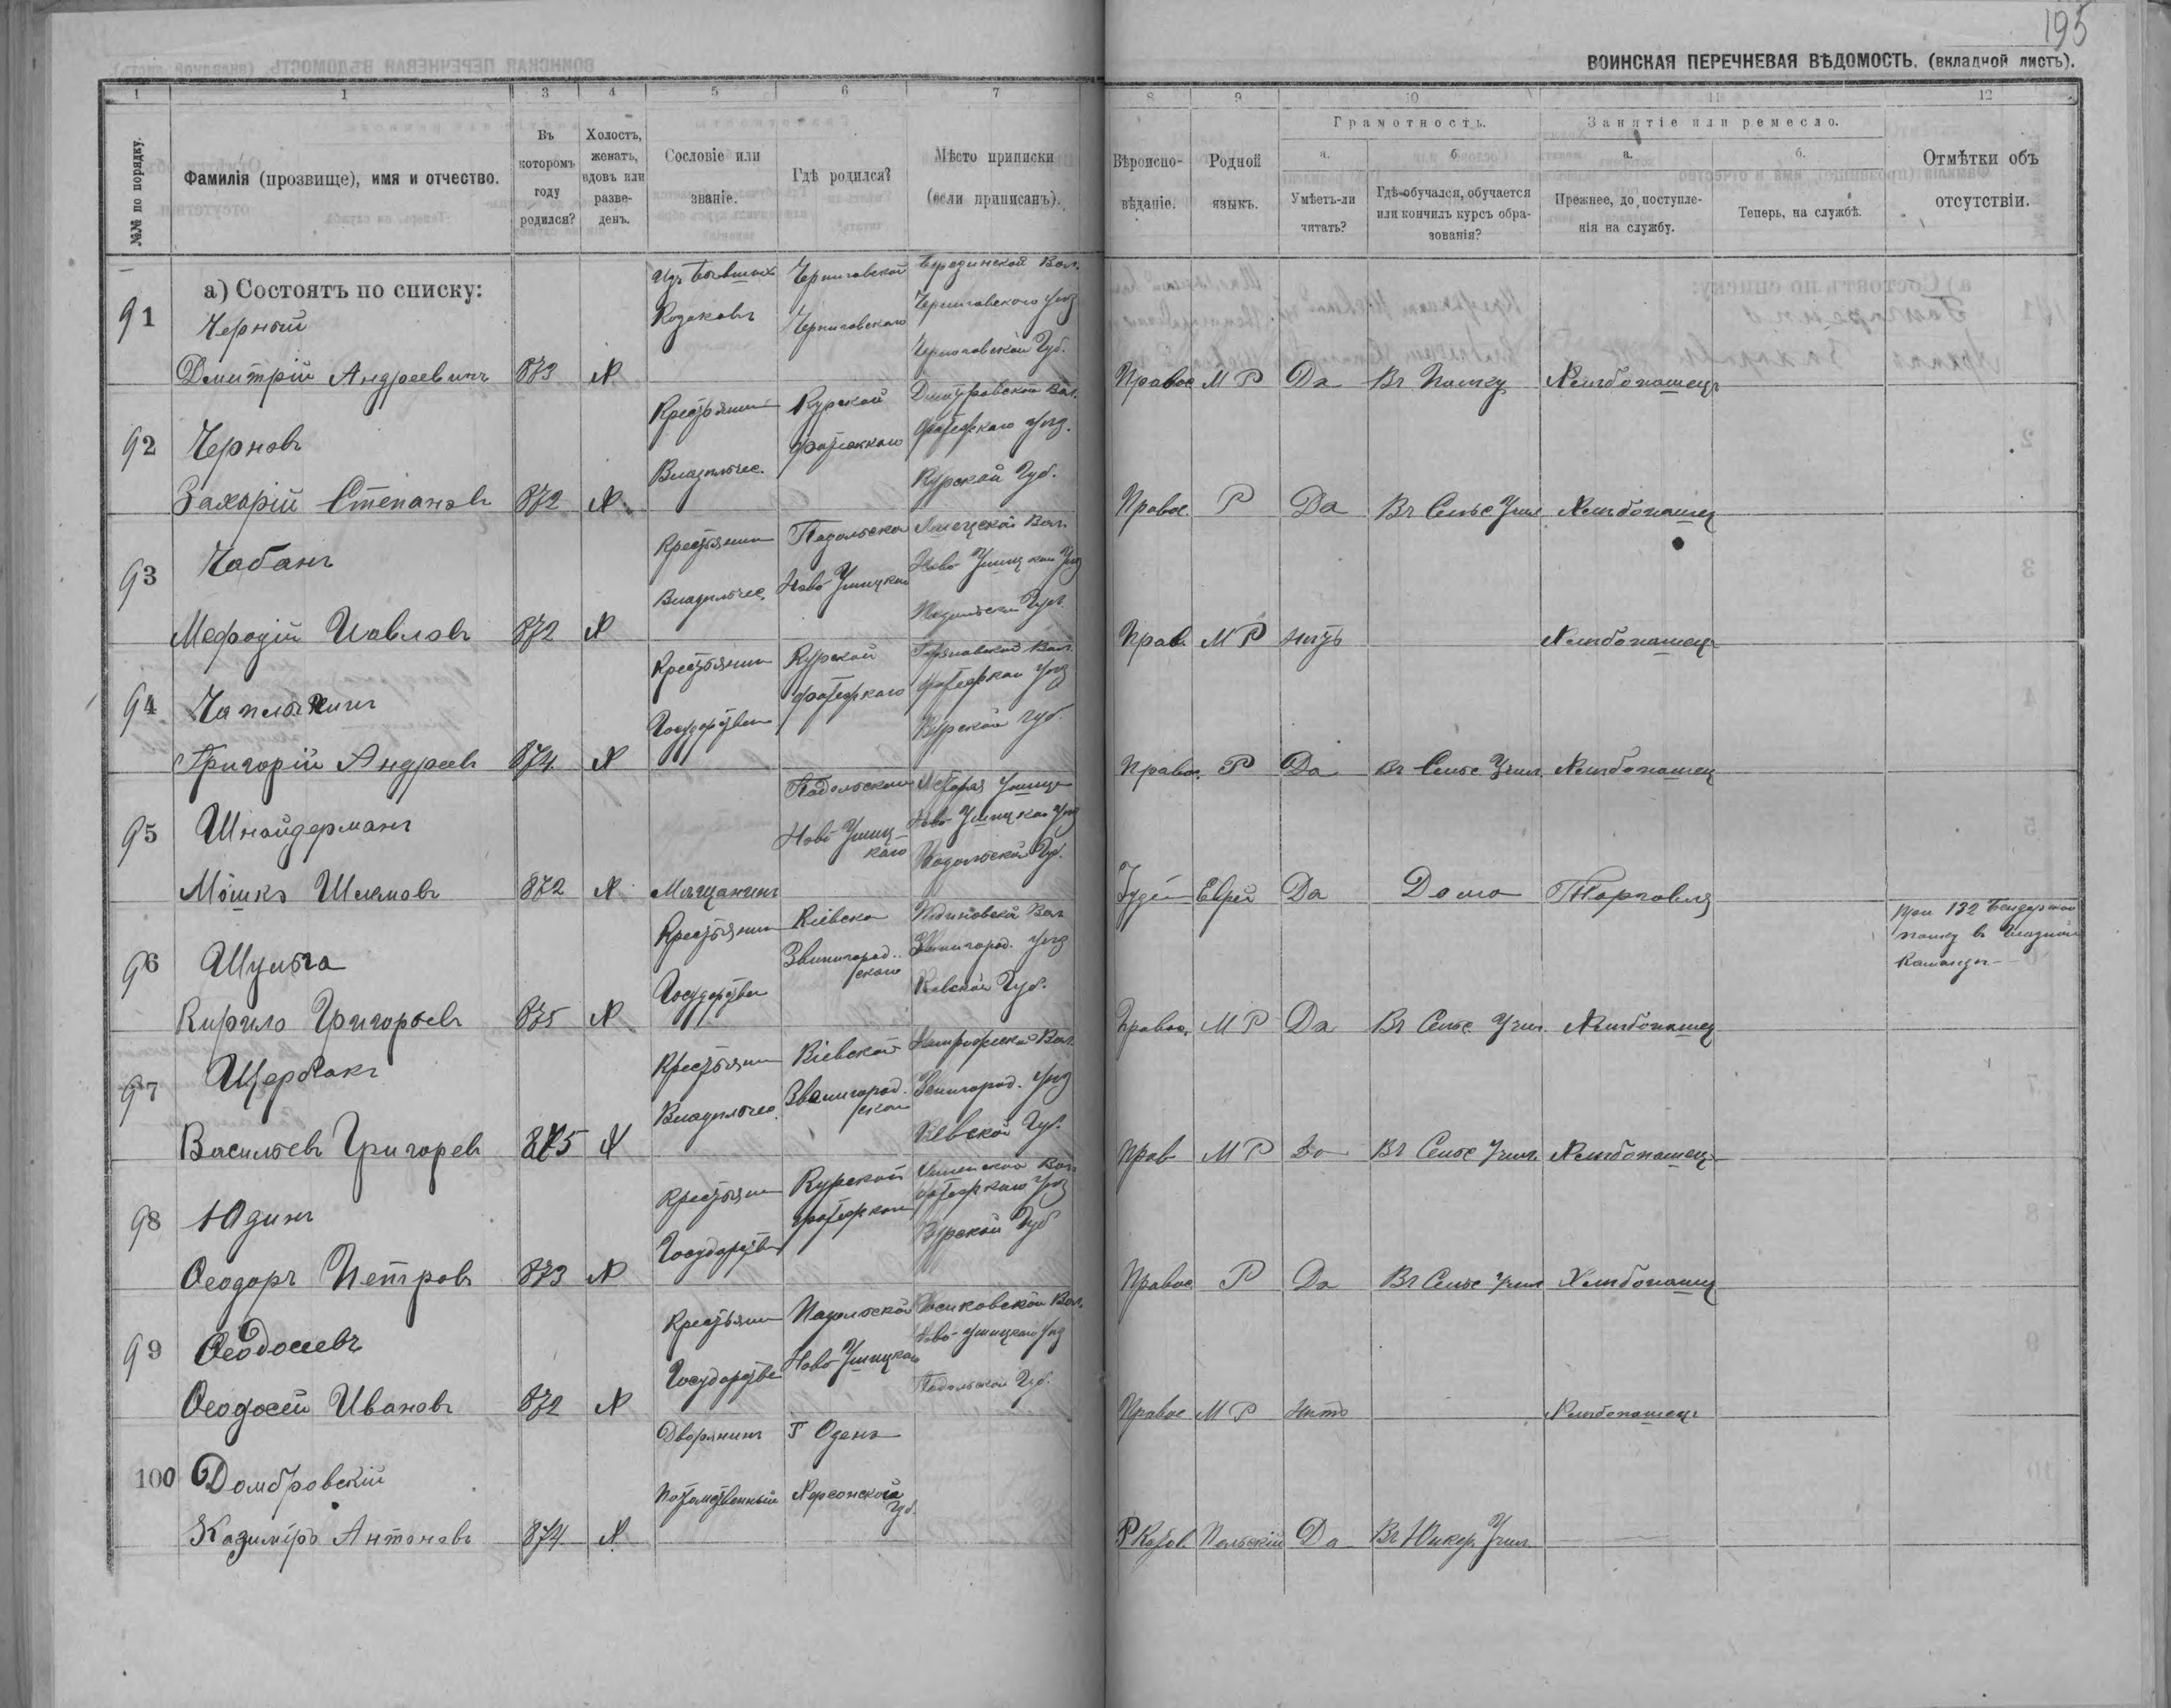 195
ВОИНСКАЯ ПЕРЕЧНЕВАЯ ВѢДОМОСТЬ. (вкладной листъ).
1 1 3 4 5 6 7 8 9 10 11 12
№№ по порядку.
Фамилія (прозвище), имя и отчество.
Въ которомъ году родился?
Холостъ, женатъ, вдовъ или разведенъ.
Сословіе или званіе.
Гдѣ родился?
Мѣсто приписки (если приписанъ).
Вѣроисповѣданіе.
Родной языкъ.
Грамотность.
а. Умѣетъ-ли читать?
б. Гдѣ обучался, обучается или кончилъ курсъ образованія?
Занятіе или ремесло.
а. Прежнее, до поступленія на службу.
б. Теперь, на службѣ.
Отмѣтки объ отсутствіи.
а) Состоятъ по списку:
91 Черный Козаковъ Черниговской Черниговскаго Черниговскаго Уѣз Черниговской Губ.
Дмитрій Андреевичъ 873 Х Правос М Р Да Въ Полку Хлѣбопашецъ
92 Черновъ Крестьянин Владѣльчес. Курской Фатежскаго Дмитровской Вол. Фатежскаго Уѣз. Курской Губ.
Захарій Степановъ 872 Х Правос. Р Да Въ Сельс Учил Хлѣбопашец
93 Чабанъ Крестьянин Владѣльчес. Подольско Ново Ушицкаго Вол. Ново Ушицкаго Уѣз Подольской Губ.
Мефодій Павловъ 872 Х Прав. М Р Нѣтъ Хлѣбопашецъ
94 Чаплыгинъ Крестьянин Государствен Курской Фатежскаго Вол. Фатежскаго Уѣз Курской Губ.
Григорій Андреевъ 874 Х Правос. Р Да Въ Сельс. Учил. Хлѣбопашец
95 Шнайдерманъ Подольской Ново Ушицкаго Старая Ушица Ново Ушицкаго Уѣз Подольской Губ.
Мошко Шлемовъ 872 Х Мѣщанинъ Іудей Еврей Да Дома Торговля
При 132 Бендерском полку в Команды
96 Шульга Крестьянин Государствен Кіевско Звенигородскаго Вол Звенигород. Уѣз Кіевской Губ.
Кирило Григорьевъ 875 Х Правос. М Р Да Въ Сельс Учил. Хлѣбопашец
97 Щербакъ Крестьянин Владѣльчес. Кіевской Звенигородскаго Вол. Звенигород. Уѣз Кіевской Губ.
Васильевъ Григорев 875 Х Прав М Р Да Въ Сельс Учил. Хлѣбопашец
98 Юдинъ Крестьянин Государстве Курской Фатежскаго Вол. Фатежскаго Уѣз Курской Губ
Ѳеодоръ Петровъ 873 Х Правос Р Да Въ Сельс Учил Хлѣбопашец
99 Ѳеодосеевъ Крестьянин Государстве Подольской Ново Ушицкаго Вол. Ново-Ушицкаго Уѣз Подольской Губ.
Ѳеодосей Ивановъ 872 Х Правос М Р Нѣтъ Хлѣбопашецъ
100 Домбровскій Дворянинъ Потомственный Г Одеса Херсонской Губ.
Казимiръ Антоновъ 874 Х. Р Катол. Польскій Да Въ Юнкер. Учил.